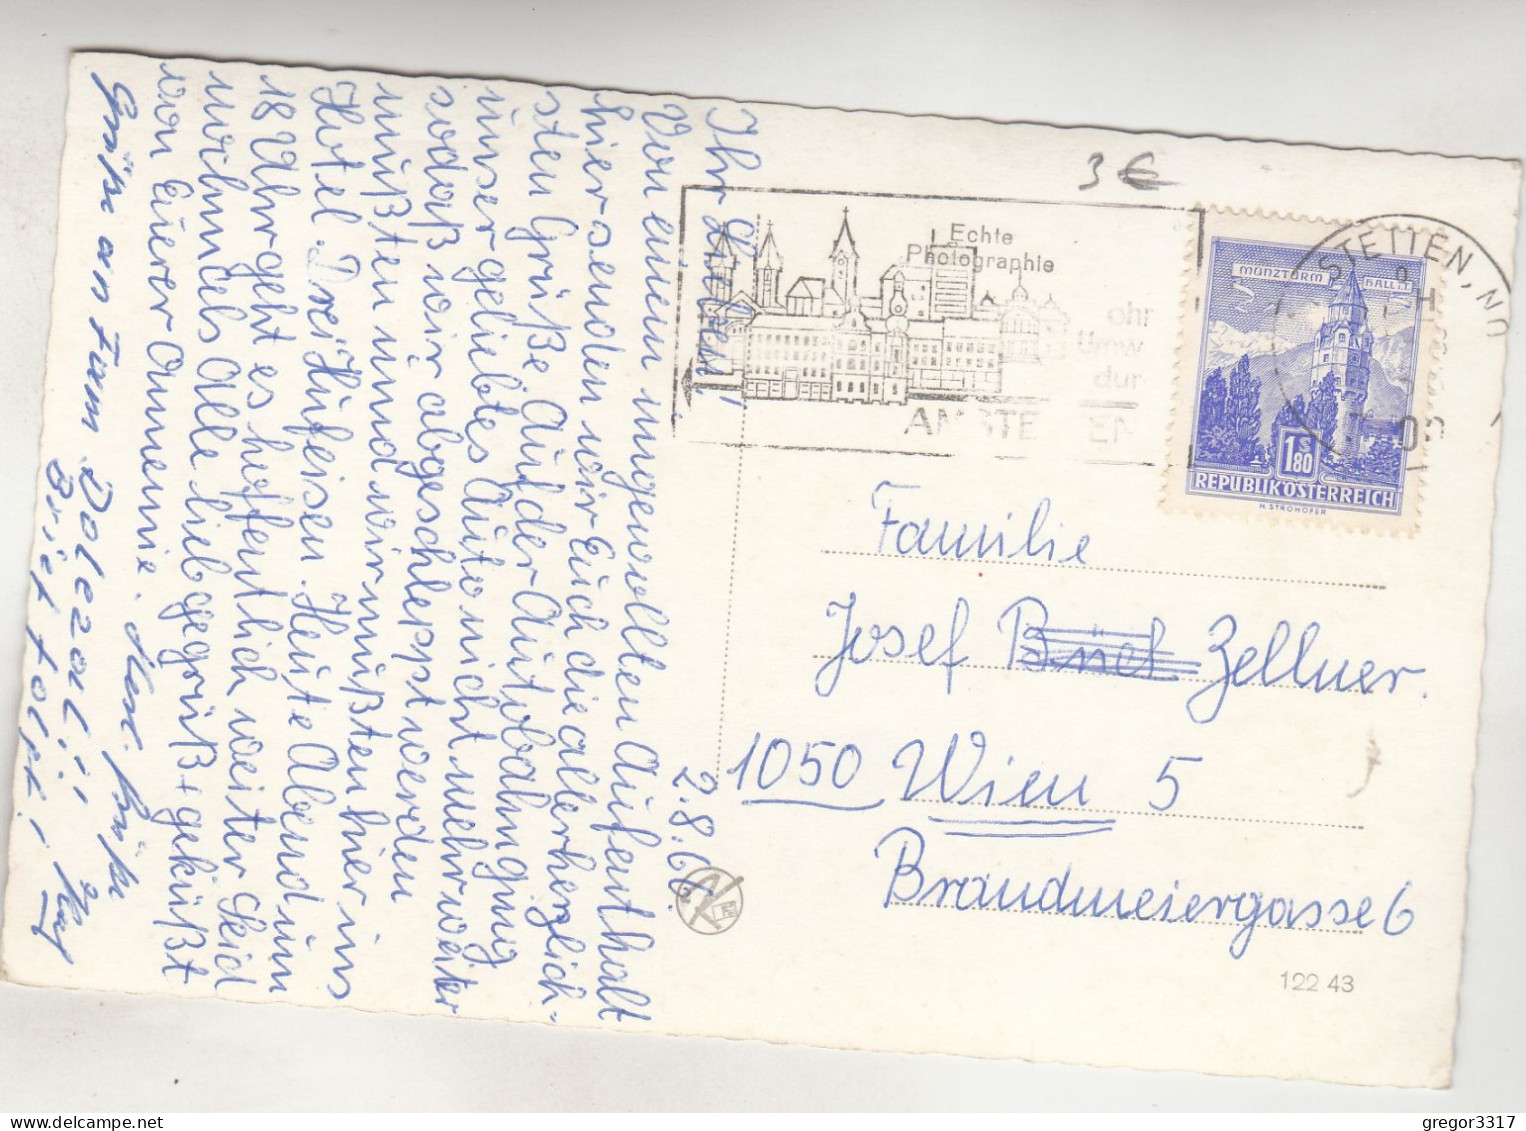 2.8.66.
Ihr Lieben!
Von einem ungewollten Aufenthalt
hier senden wir Euch die allerherzlich-
sten Grüße. Auf der Autobahn ging
unser geliebtes Auto nicht mehr weiter
sodaß wir abgeschleppt werden
mußten und wir mußten hier ins
Hotel. Drei Hufeisen. Heute Abend um
18 Uhr geht es hoffentlich weiter. Seid
nochmals alle lieb gegrüßt + geküßt
von Eurer Annemie.
an Fam. Dolezal
3 €
Echte
Photographie
ohr
Umw
dur
AMSTE EN
STETTEN, NÖ
MÜNZTURM HALL i.T.
S 1.80
REPUBLIK ÖSTERREICH
H. STROHOFER
Familie
Josef Zellner.
1050 Wien 5
Brandmeiergasse 6
122 43
gregor3317